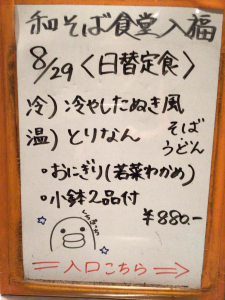 和そば食堂入福
8/29〈日替定食〉
冷)冷やしたぬき風
温)とりなん
そば
うどん
・おにぎり(若菜わかめ)
・小鉢2品付
¥880.-
入口こちら